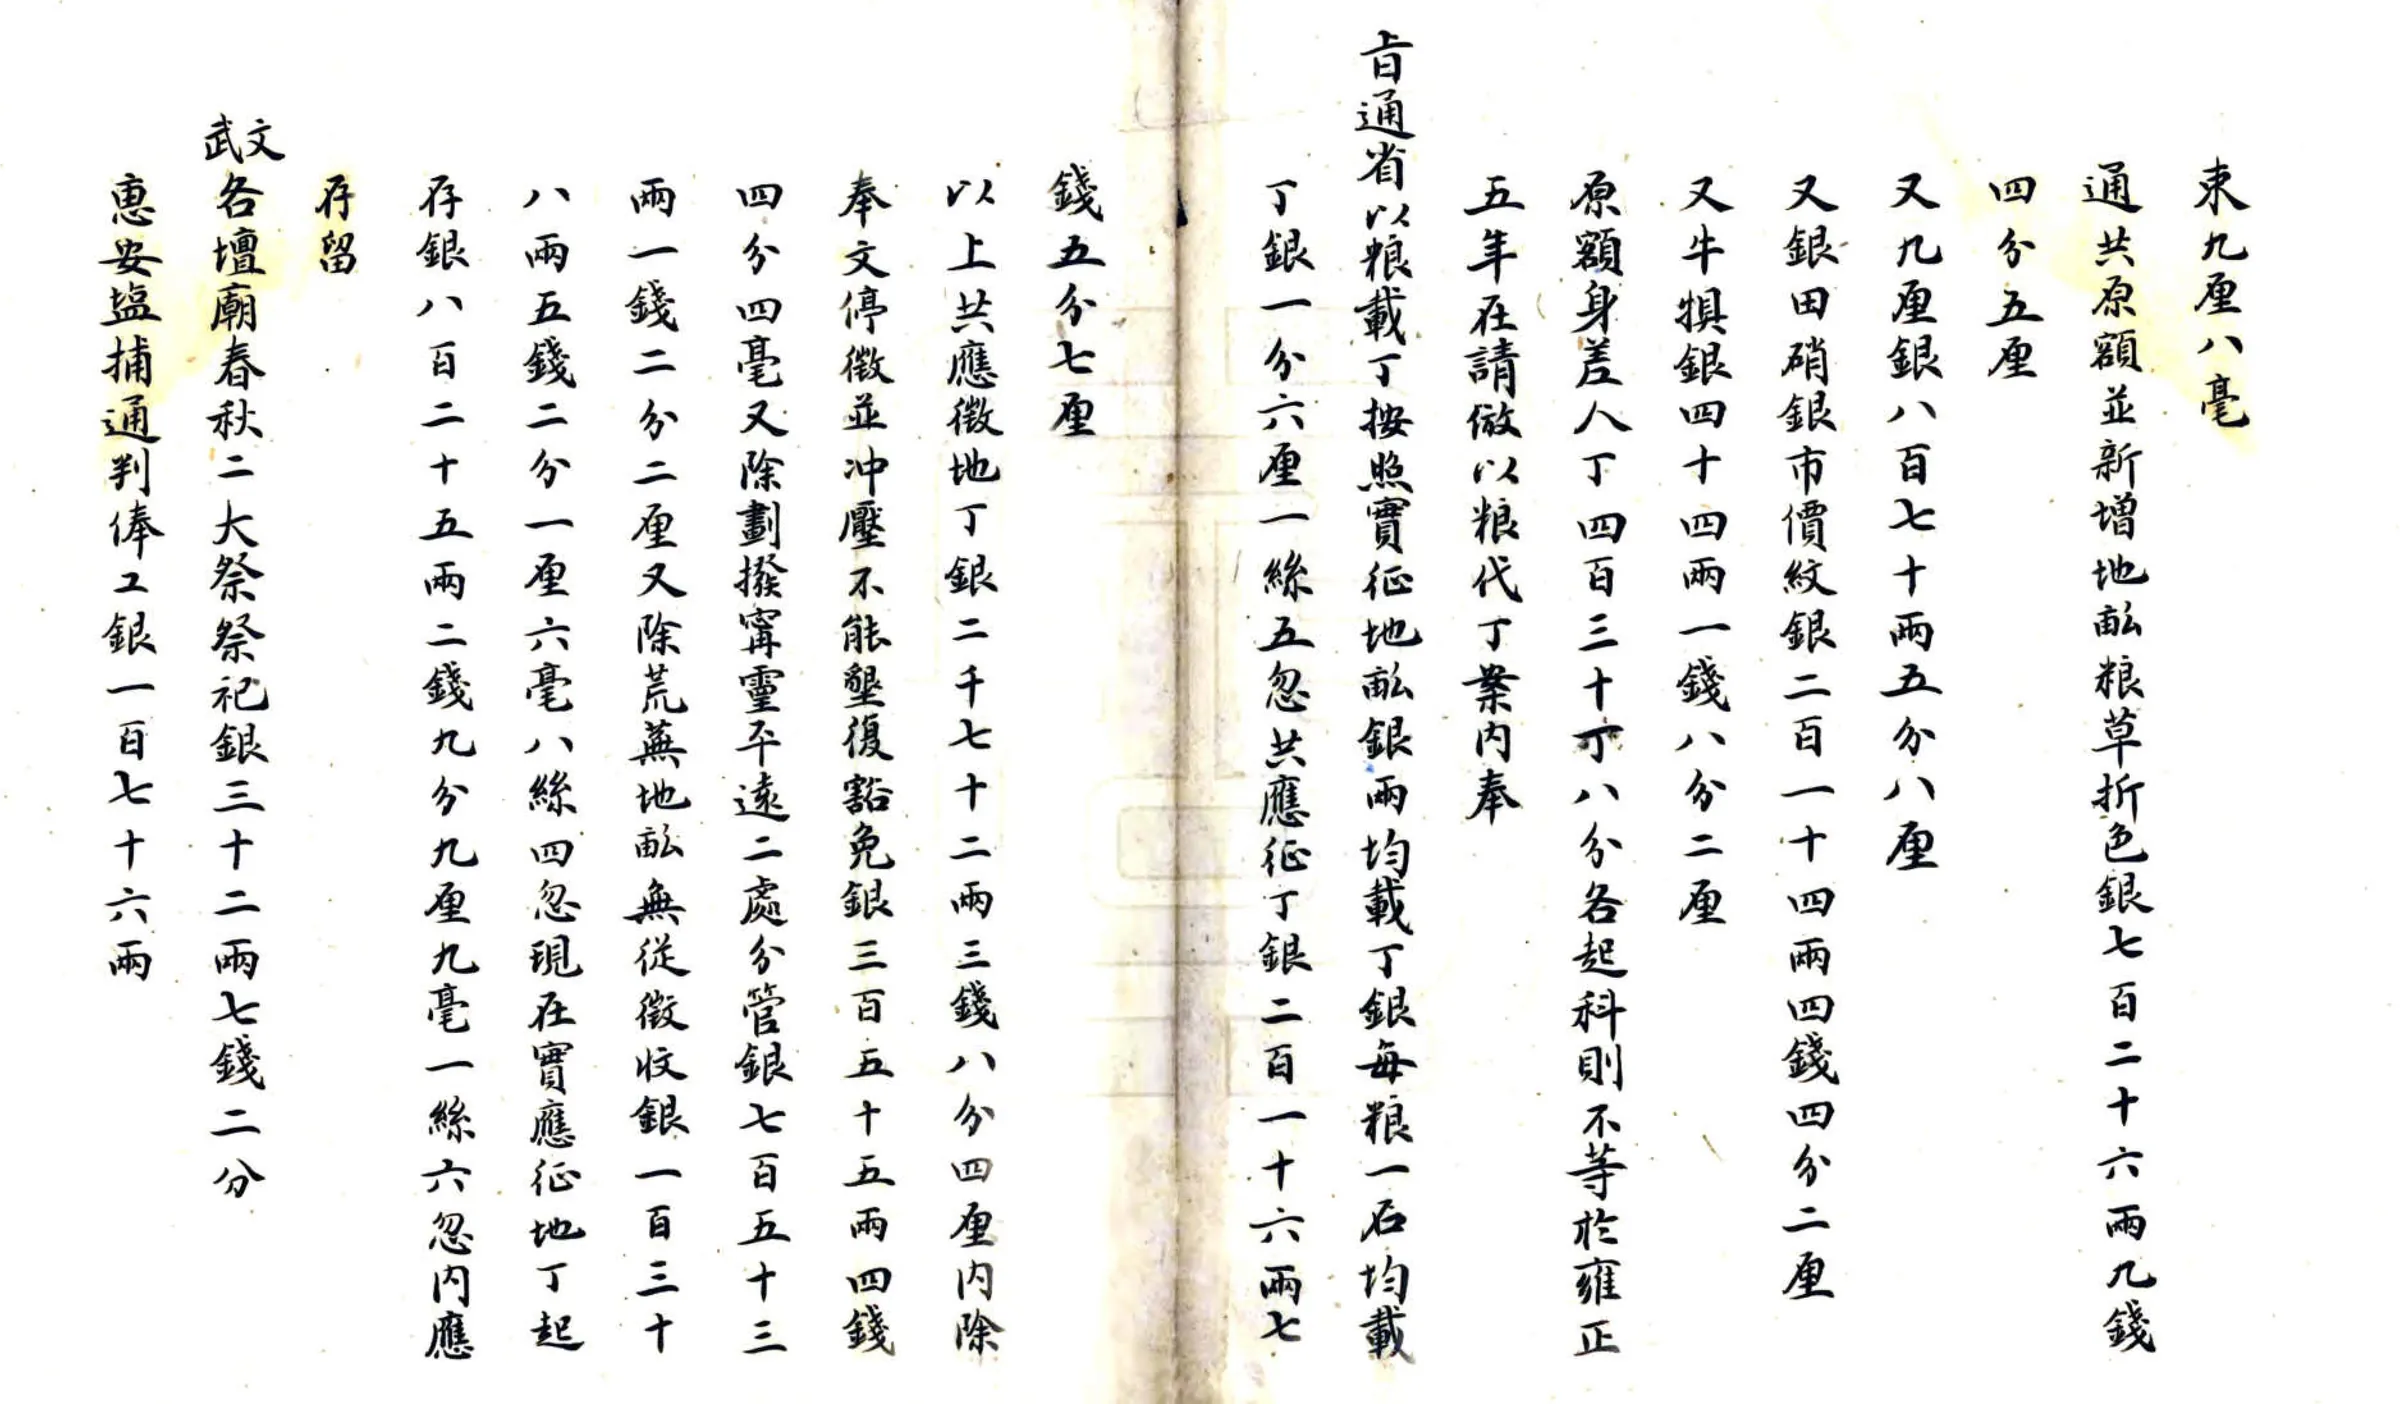 束九厘八毫
通共原額並新增地畝粮草折色銀七百二十六兩九錢
四分五厘
又九厘銀八百七十兩五分八厘
又銀田硝銀市價紋銀二百一十四兩四錢四分二厘
又牛犋銀四十四兩一錢八分二厘
原額身差人丁四百三十丁八分各起科則不等於雍正
五年在請倣以粮代丁案内奉
旨通省以粮載丁按照實征地畝銀兩均載丁銀每粮一石均載
丁銀一分六厘一絲五忽共應征丁銀二百一十六兩七
錢五分七厘
以上共應徵地丁銀二千七十二兩三錢八分四厘内除
奉文停徵並冲壓不能墾復豁免銀三百五十五兩四錢
四分四毫又除劃撥寗靈平遠二處分管銀七百五十三
兩一錢二分二厘又除荒蕪地畝無從徵收銀一百三十
八兩五錢二分一厘六毫八絲四忽現在實應征地丁起
存銀八百二十五兩二錢九分九厘九毫一絲六忽内應
存留
文武各壇廟春秋二大祭祭祀銀三十二兩七錢二分
惠安塩捕通判俸工銀一百七十六兩